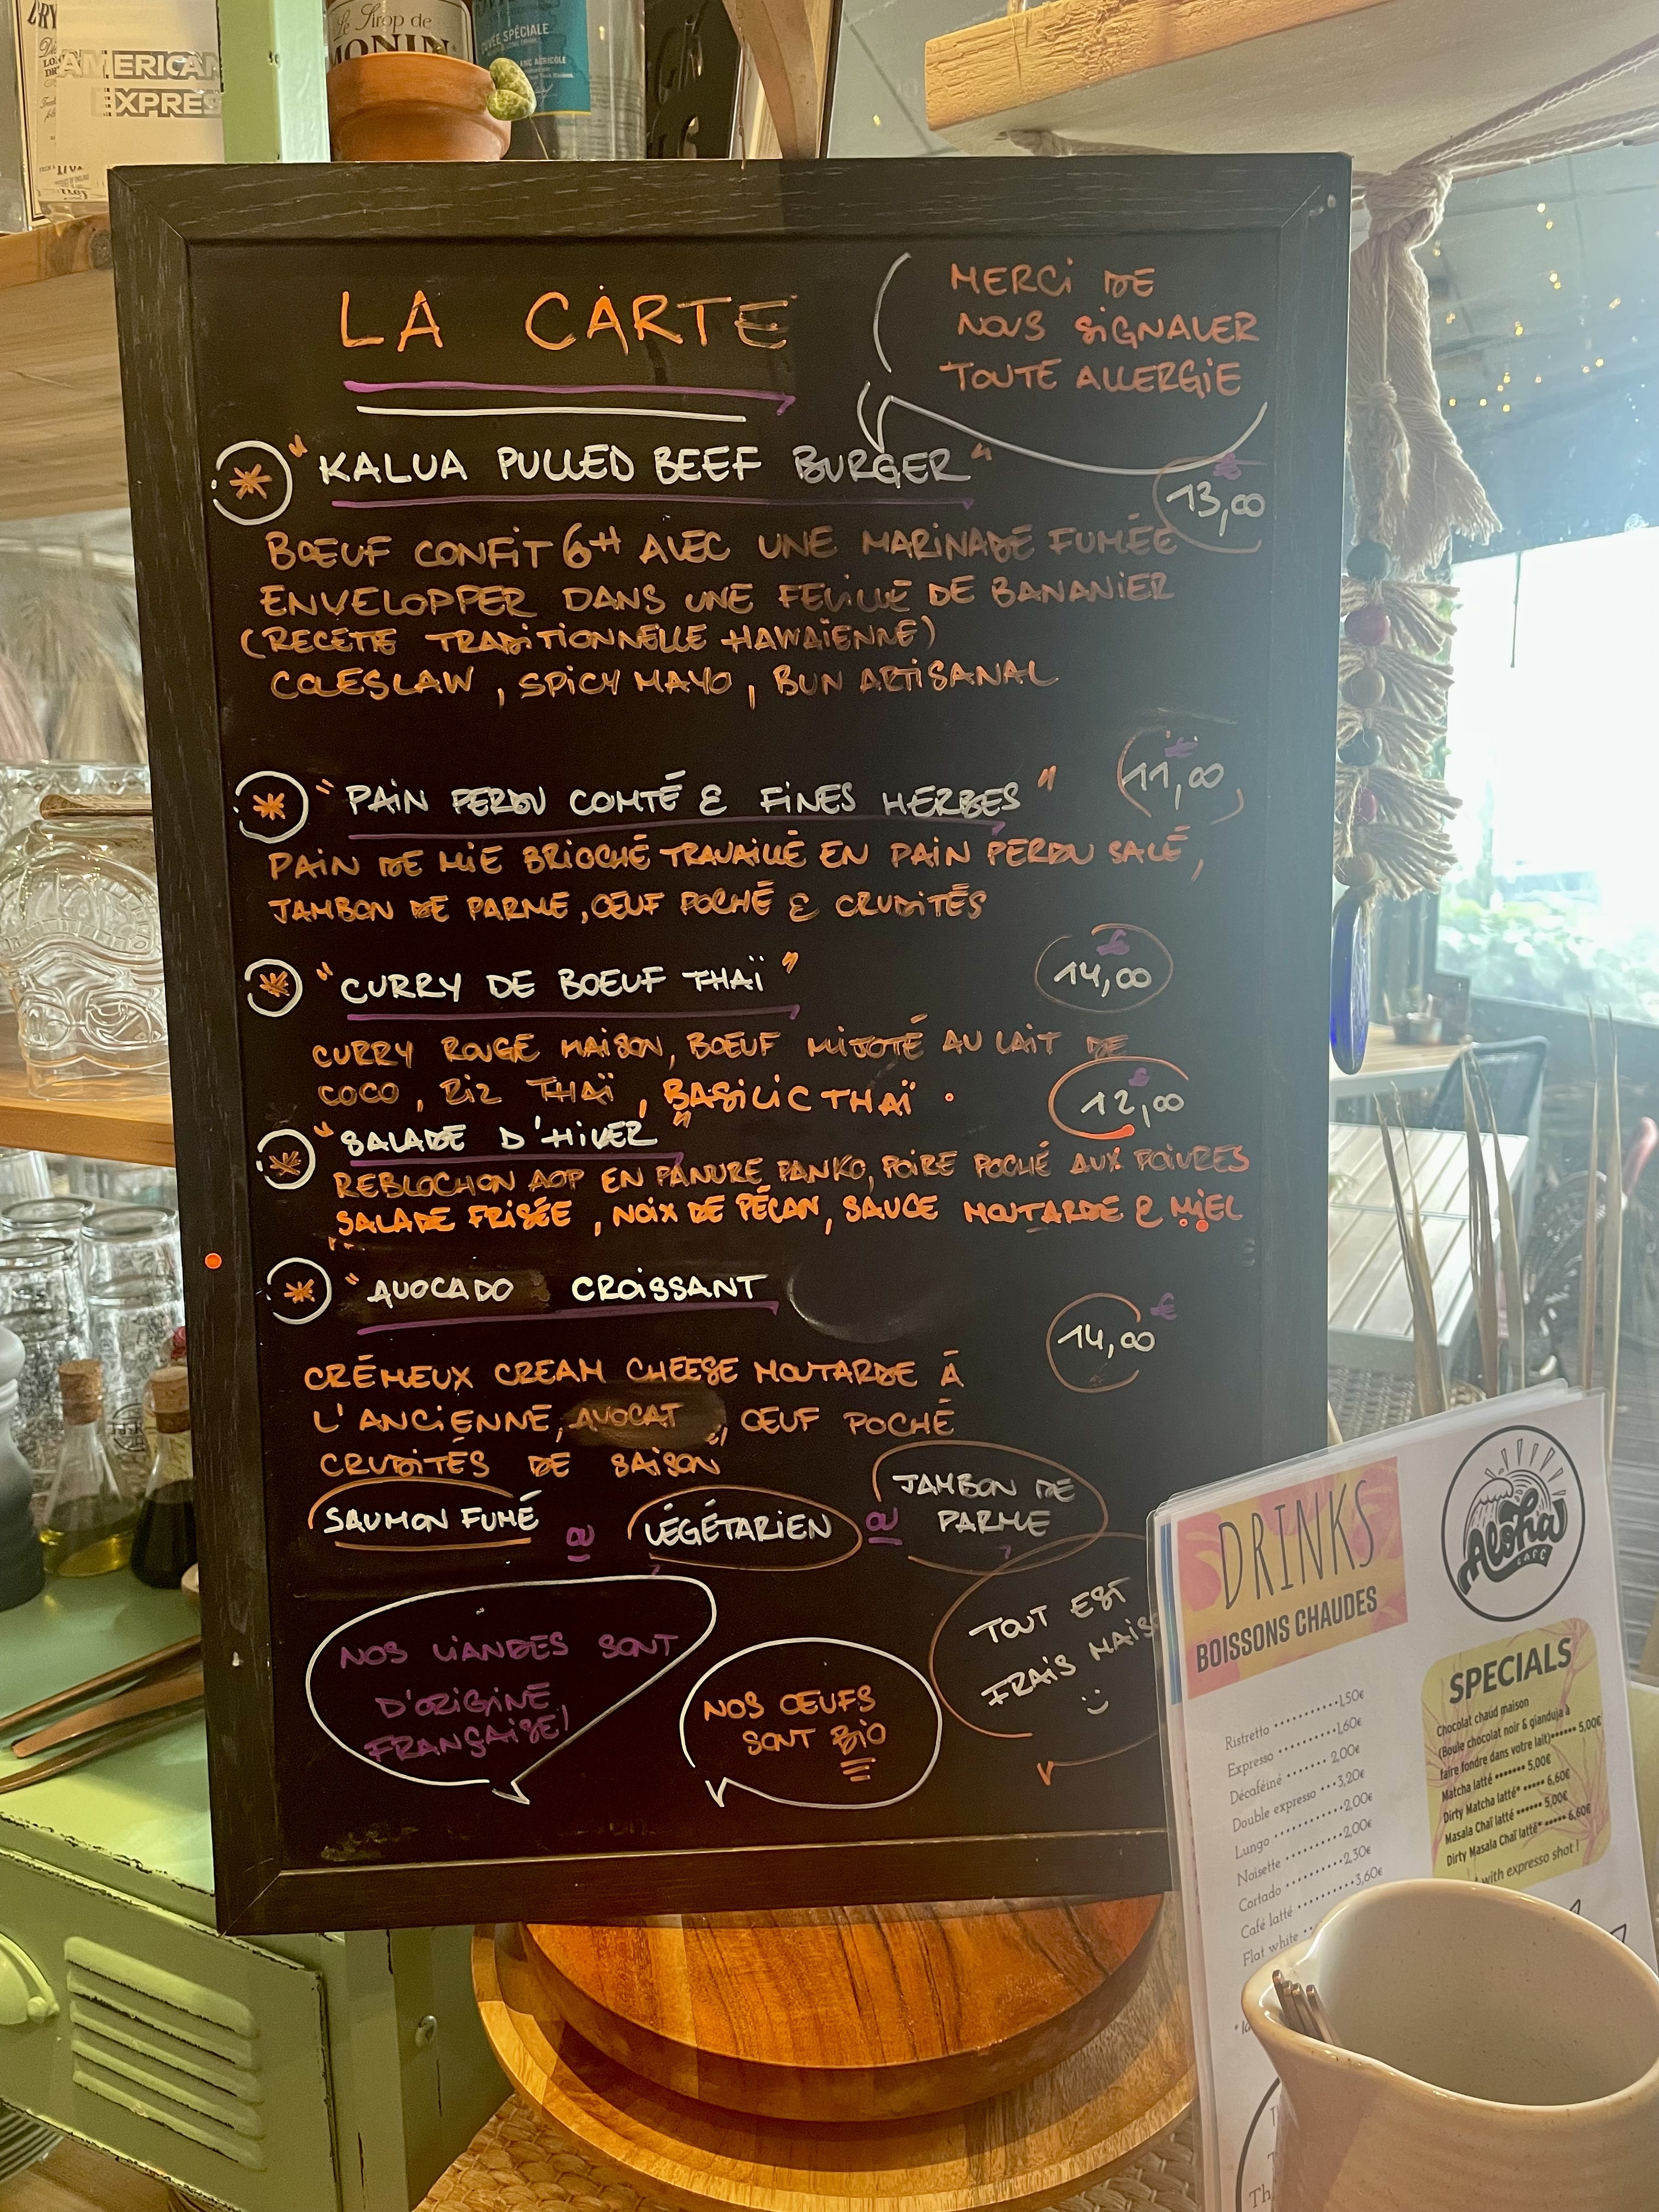 AMERICAN
EXPRES
Le Sirop de
MONIN
CUVÉE SPÉCIALE
LA CARTE
MERCI DE
NOUS SIGNALER
TOUTE ALLERGIE
"KALUA PULLED BEEF BURGER"
13,00 €
BŒUF CONFIT 6H AVEC UNE MARINADE FUMÉE
ENVELOPPER DANS UNE FEUILLE DE BANANIER
(RECETE TRADITIONNELLE HAWAÏENNE)
COLESLAW, SPICY MAYO, BUN ARTISANAL
"PAIN PERDU COMTÉ & FINES HERBES"
11,00 €
PAIN DE MIE BRIOCHÉ TRAVAILLÉ EN PAIN PERDU SALÉ,
JAMBON DE PARME, ŒUF POCHÉ & CRUDITÉS
"CURRY DE BOEUF THAÏ"
14,00 €
CURRY ROUGE MAISON, BOEUF MIJOTÉ AU LAIT DE
COCO, RIZ THAÏ, BASILIC THAÏ.
12,00 €
"SALADE D'HIVER"
REBLOCHON AOP EN PANURE PANKO, POIRE POCHÉ AUX POIVRES
SALADE FRISÉE, NOIX DE PÉCAN, SAUCE MOUTARDE & MIEL
"AVOCADO CROISSANT
14,00 €
CRÉMEUX CREAM CHEESE MOUTARDE À
L'ANCIENNE, AVOCAT, ŒUF POCHÉ
CRUDITÉS DE SAISON
SAUMON FUMÉ ou VÉGÉTARIEN ou JAMBON DE
PARME
NOS VIANDES SONT
D'ORIGINE
FRANÇAISE!
NOS ŒUFS
SONT BIO
TOUT EST
FRAIS MAIS
:)
DRINKS
BOISSONS CHAUDES
Aloha
CAFÉ
Ristretto 1,50€
Expresso 1,60€
Décaféiné 2,00€
Double expresso 3,20€
Lungo 2,00€
Noisette 2,00€
Cortado 2,30€
Café latté 3,60€
Flat white
SPECIALS
Chocolat chaud maison
(Boule chocolat noir & gianduja à
faire fondre dans votre lait) 5,00€
Matcha latté 5,00€
Dirty Matcha latté* 6,60€
Masala Chaï latté 5,00€
Dirty Masala Chaï latté* 6,60€
with expresso shot !